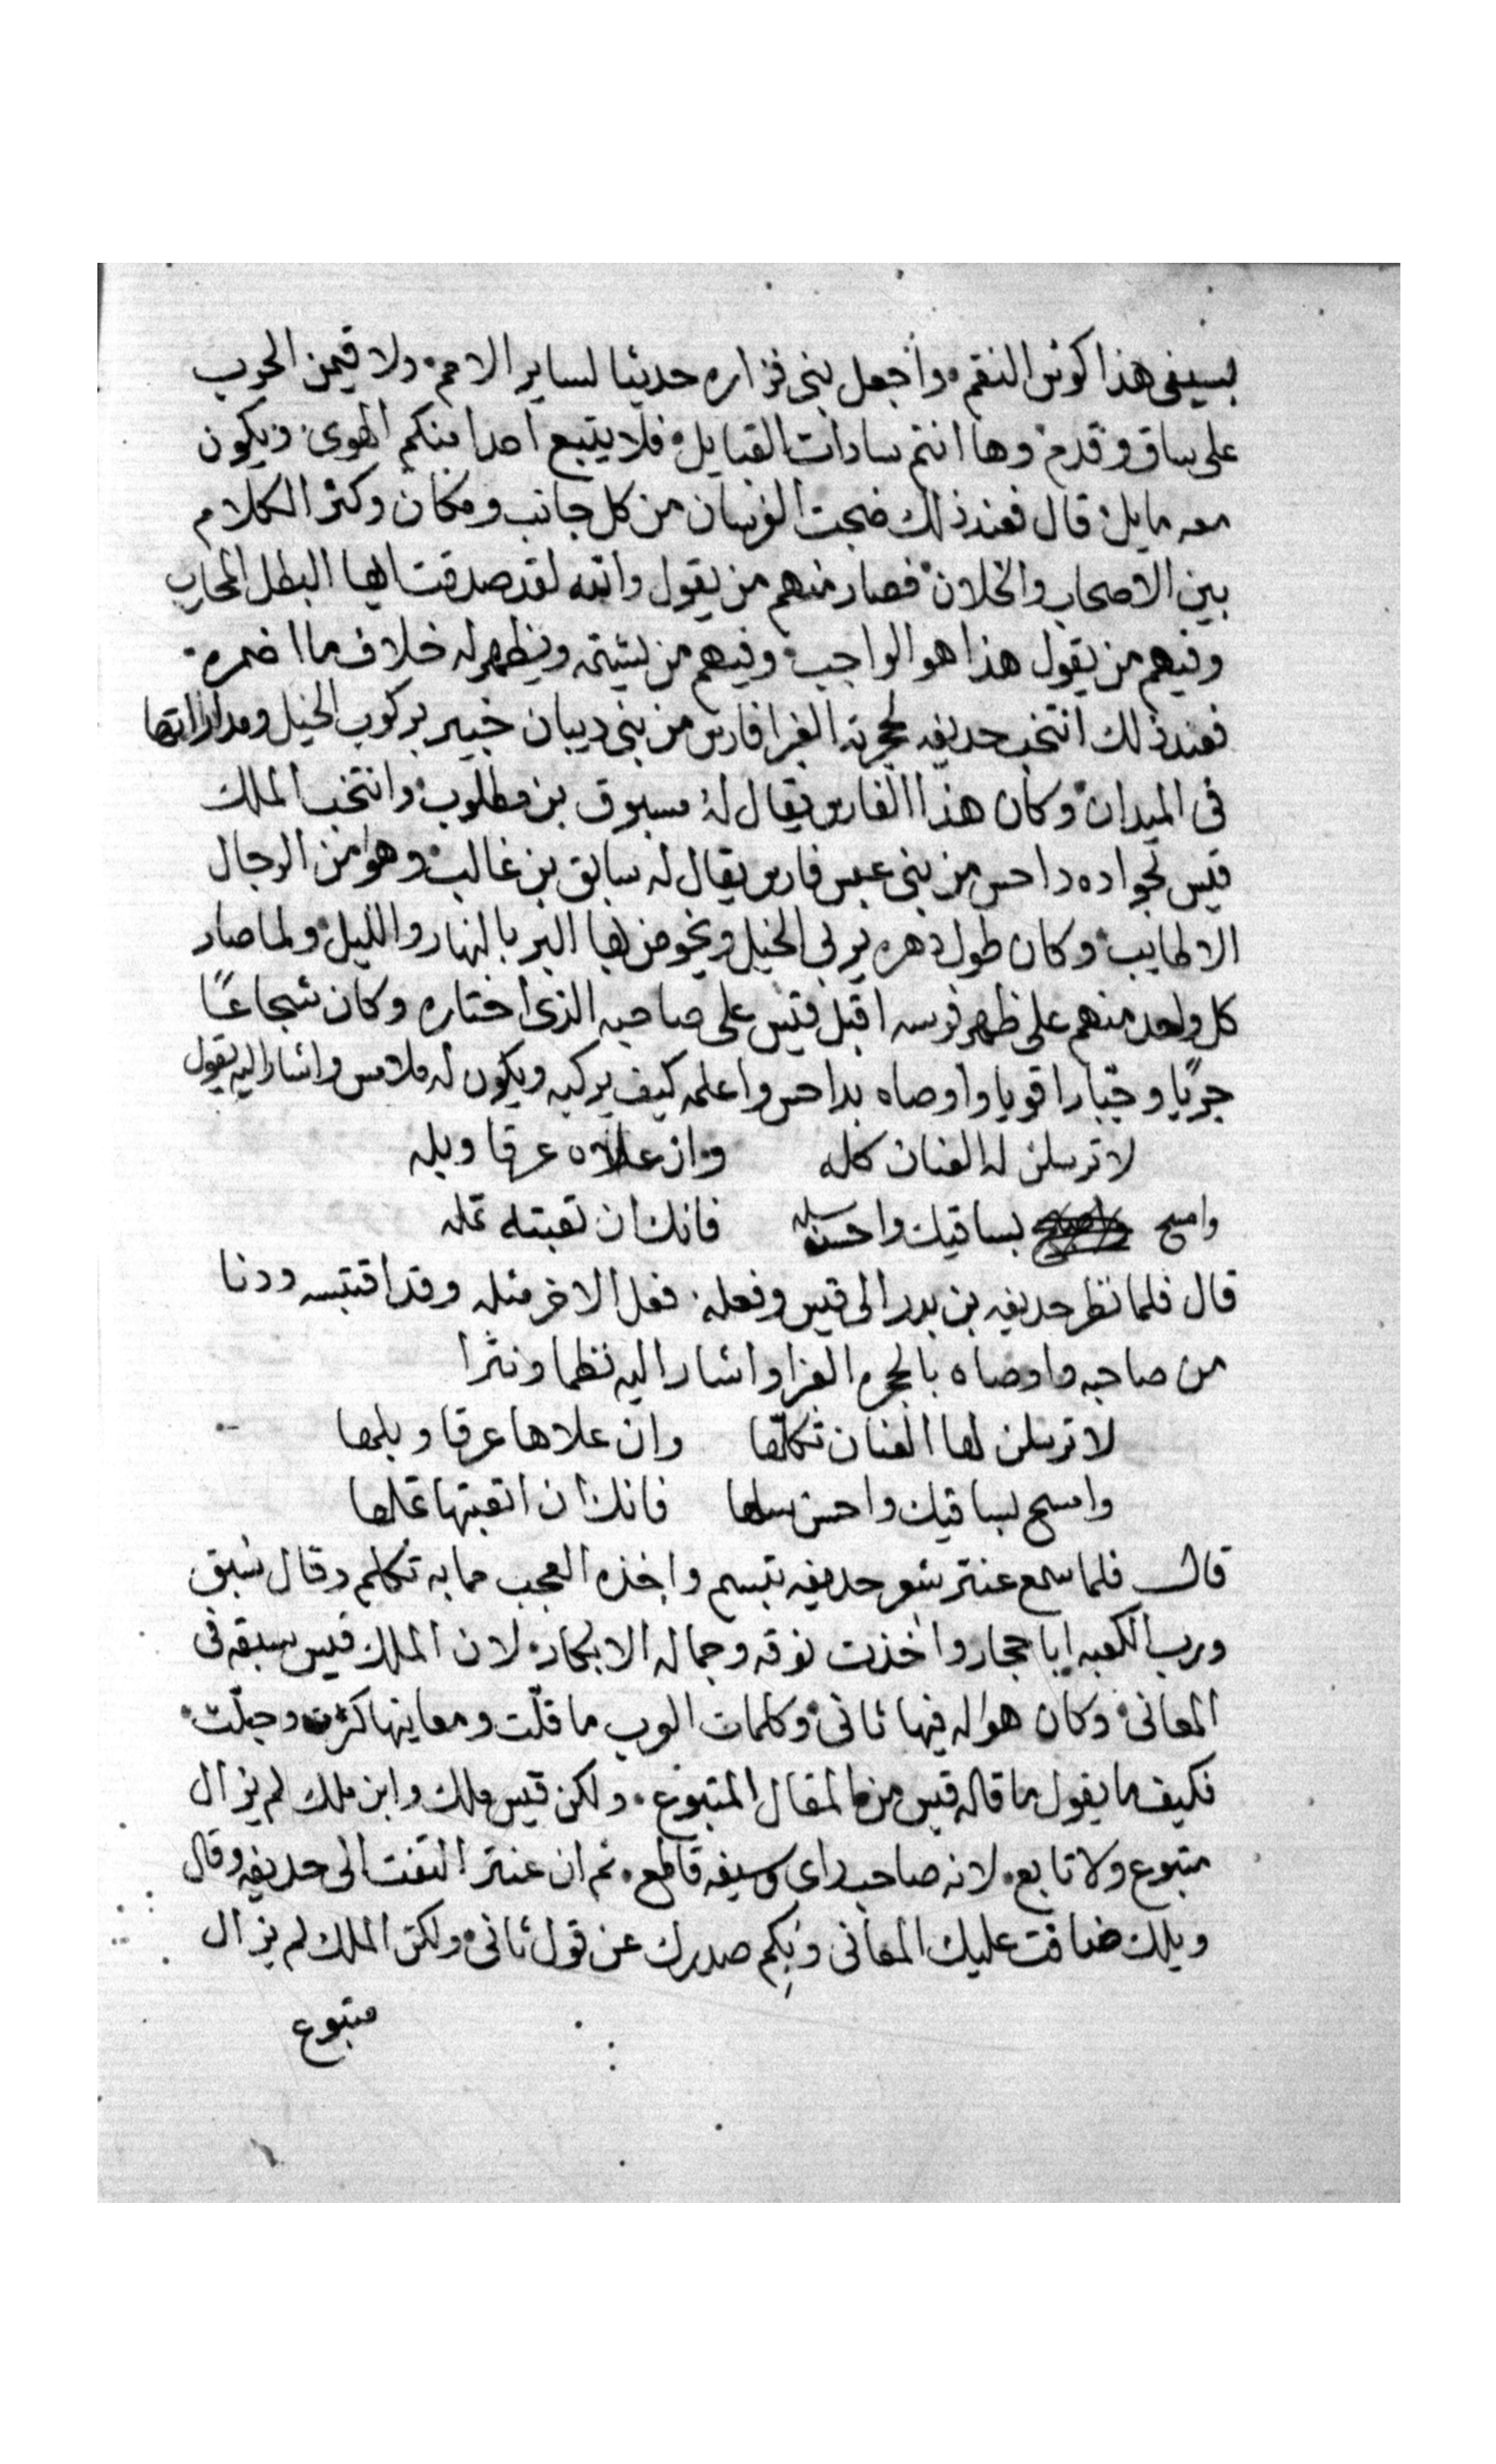 بسيفى هذا كوس النقم، واجعل بنى فزاره حديثا لساير الامم، ولاقيمن الحرب
على ساق وقدم، وها انتم سادات القبايل، فلا يتبع احدا منكم الهوى، ويكون
معه مايل، قال فعند ذلك ضجت الفرسان من كل جانب ومكان وكثر الكلام
بين الاصحاب والخلان، فصار منهم من يقول والله لقد صدقت ايها البطل المحارب
وفيهم من يقول هذا هو الواجب، وفيهم من يشيته ويظهر له خلاف ما اضمره،
فعند ذلك انتخب حديفه لحجرته الغبرا فارس من بنى ديبان خبير بركوب الخيل ومداراتها
فى الميدان، وكان هذا الفارس يقال له مسبوق بن مطلوب، وانتخب الملك
قيس لجواده داحس من بنى عبس فارس يقال له سابق بن غالب، وهو من الرجال
الاطايب، وكان طول دهره يربى الخيل ويخوض بها البر بالنهار والليل، ولما صار
كل واحد منهم على ظهر فرسه اقبل قيس على صاحبه الذى اختاره وكان شجاعًا
جريًا وخبّارا قويا واوصاه بداحس واعلمه كيف يركبه ويكون له ملامس واشار اليه يقول
لا ترسلن له العنان كله وان علاه عرقا وبله
وامسح بساقيك واحسن سله فانك ان تعبته تمله
قال فلما نظر حديفه بن بدر الى قيس وفعله، فعل الاخر مثله وقد اقتبسه ودنا
من صاحبه واوصاه بالحجره الغبرا واشار اليه نظما ونثرا
لا ترسلن لها العنان تكلها وان علاها عرقا وبلها
وامسح بساقيك واحسن سلها فانك ان اتعبتها تملها
قال فلما سمع عنتر شعر حديفه تبسم واخذه العجب مما به تكلم وقال سُبق
ورب الكعبه ابا حجار واخذت نوقه وجماله الابكار، لان الملك قيس سبقه فى
المعانى، وكان هو له فيها ثانى، وكلمات العرب ما قلّت ومعاينها كثرت وجلّت،
فكيف ما يقول ما قاله قيس من المقال المتبوع، ولكن قيس ملك وابن ملك لم يزال
متبوع ولا تابع، لانه صاحب راى وسيفه قاطع، ثم ان عنتر التفت الى حديفه وقال
ويلك ضاقت عليك المعانى وبِكم صدرك عن قول ثانى، ولكن الملك لم يزال
متبوع